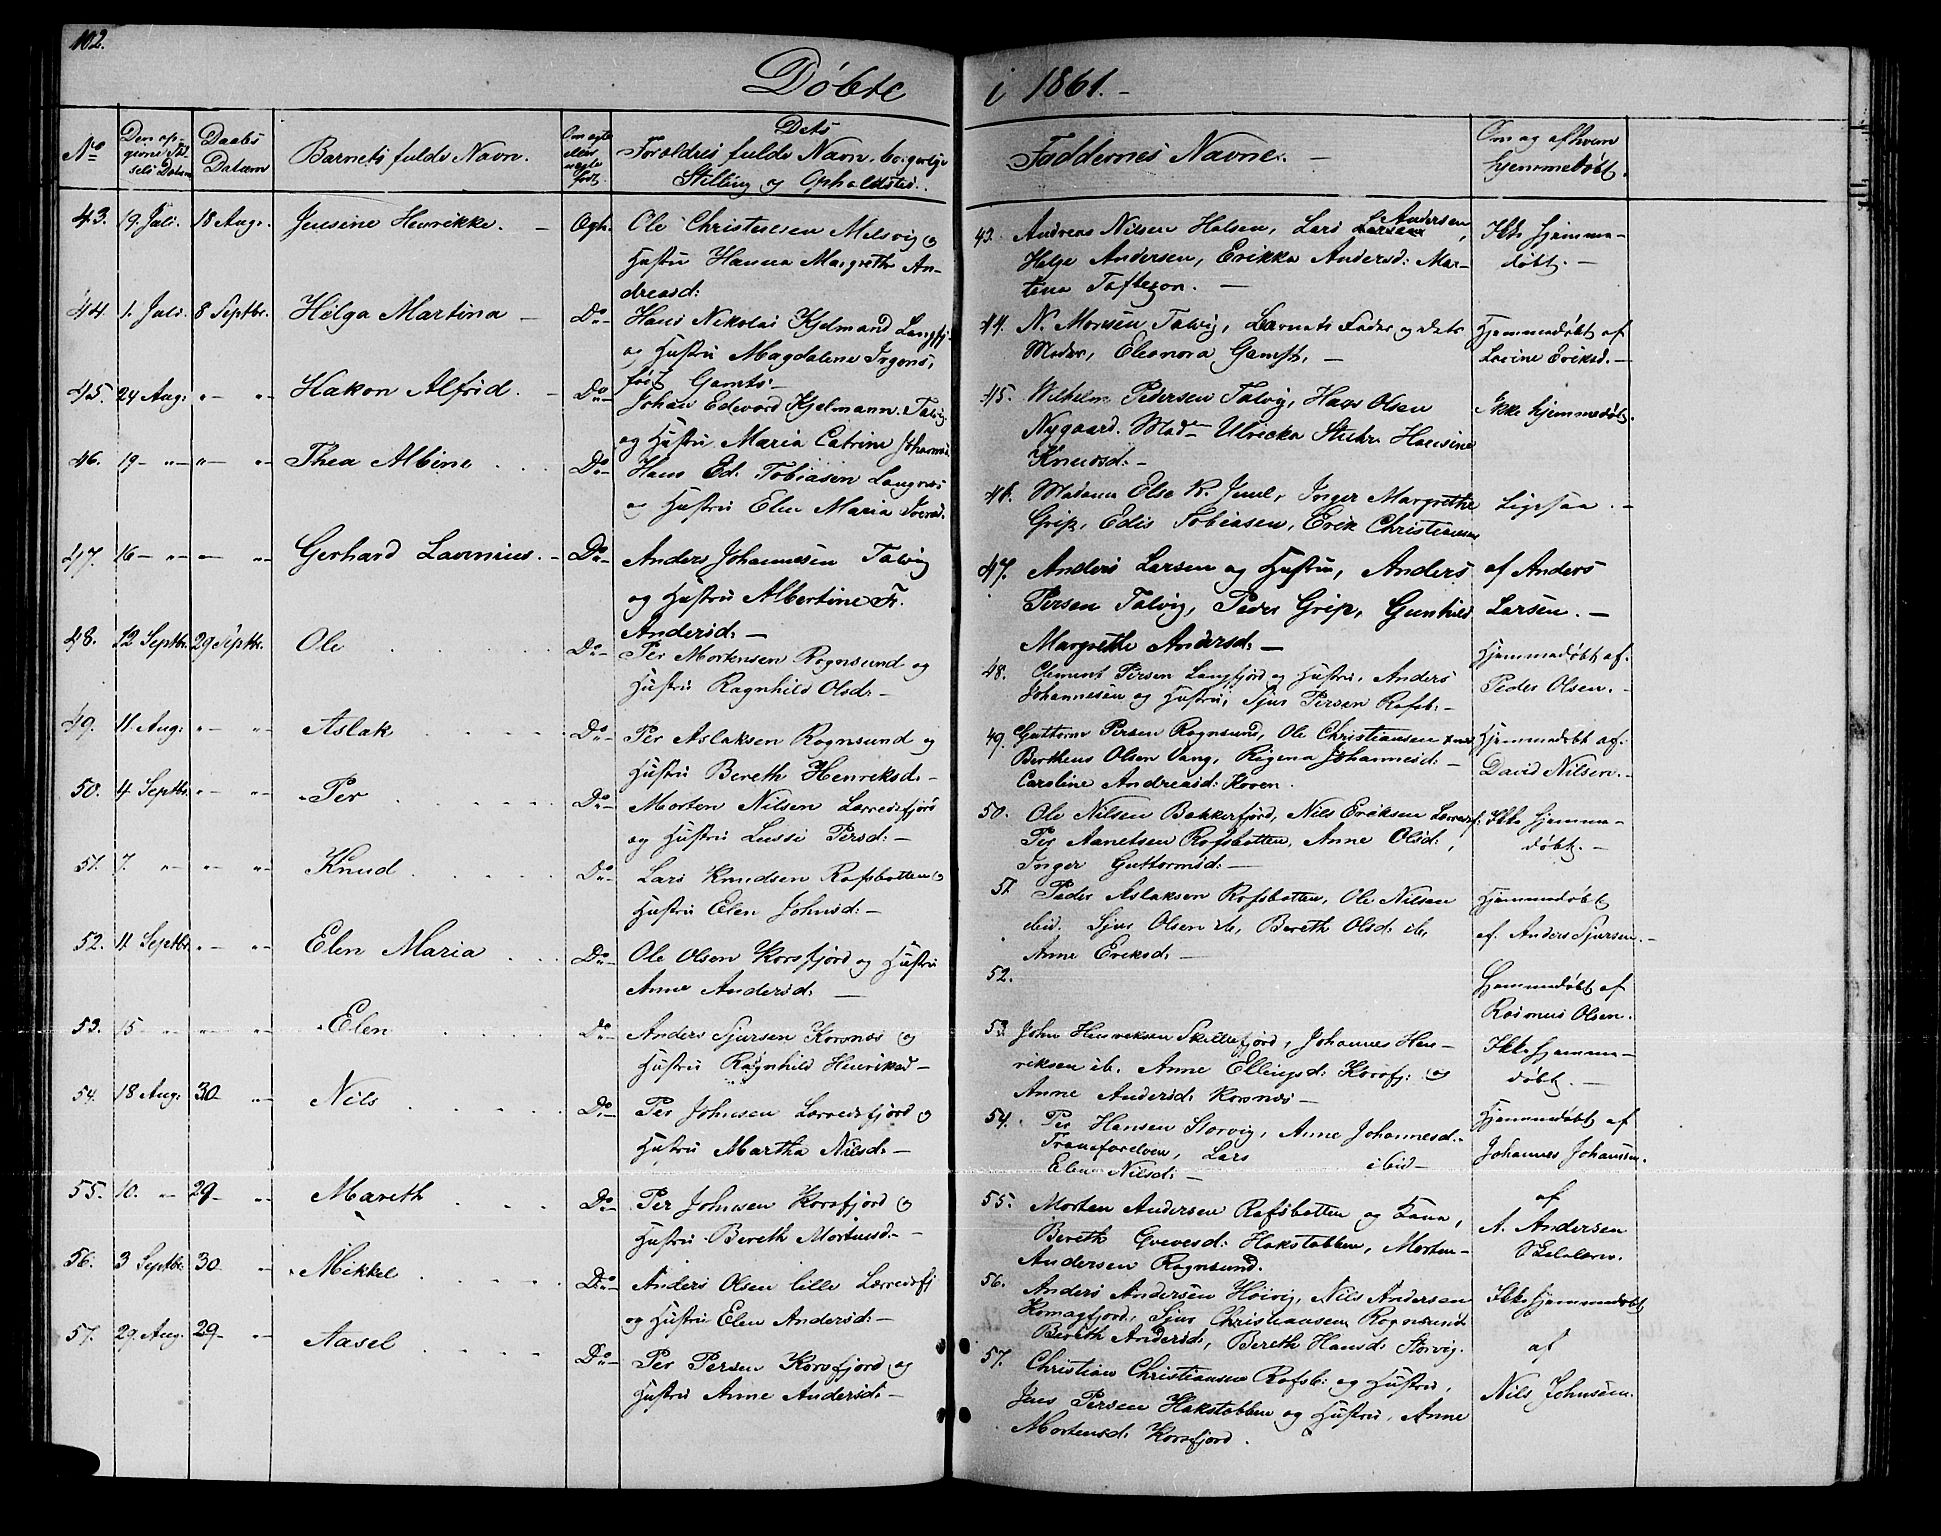 102.
Döbte i 1861.-
No
Den op-
givne Fød-
sels Datum
Daabs
Datum
Barnets fulde Navn.
Om ægte
eller
uægte
født.
Dets
Forældres fulde Navn, borgerlige
Stilling og Opholdsted.
Faddernes Navne. -
Om og af hvem
hjemmedøbt.
43. 19. Juli. 18 Aug. Jensine Henrikke. - Ægt.
Ole Christensen Melsvig og
Hustru Hanna Margrethe An-
dreasd:
44. 1. Juli. 8 Septbr. Helga Martina - Do
Hans Nikolai Kjelmand Langfj.
og Hustru Magdalene Irgens,
født Gamts.
45. 24 Aug: -"- -"- Hakon Alfrid. - Do
Johan Edevard Kjelmann. Talvig
og Hustru Maria Catrine
46. 19- -"- -"- -"- Thea Albine . . . Do
Hans Ed. Tobiasen Langnes
og Hustru Elen Maria Iversd.
47. 16- -"- -"- -"- Gerhard Lavinius. - Do
Anders Johannesen Talvig
og Hustru Albertine Fr.
Andersd: -
48. 12 Septbr. 29 Septbr. Ole . . . Do
Per Mortensen Rognsund og
Hustru Ragnhild Olsd: -
49. 11. Aug: -"- -"- Aslak . . . Do
Per Aslaksen Rognsund og
Hustru Bereth Henriksd: -
50. 4 Septbr. -"- -"- Per . . . Do
Morten Nilsen Lerredsfjord
og Hustru Lussi Persd: -
51. 7. -"- -"- -"- Knud . . . Do
Lars Knudsen Rafsbotten og
Hustru Elen Johnsd: -
52. 11 Septbr. -"- -"- Elen Maria . . . Do
Ole Olsen Korsfjord og Hustru
Anne Andersd: -
53. 15- -"- -"- -"- Elen . . . Do
Anders Sjursen Korsnes og
Hustru Ragnhild Henriksd -
54. 18 Aug: 30. -"- Nils . . . Do
Per Johnsen Lerredsfjord og
Hustru Martha Nilsd: -
55. 10. -"- 29- -"- Mareth . . . Do
Per Johnsen Korsfjord og
Hustru Bereth Mortensd: -
56. 3 Septbr. 30 -"- Mikkel . . . Do
Anders Olsen lille Lerredsfj
og Hustru Elen Andersd: -
57. 29. Aug: 29- -"- Aasel . . . Do
Per Persen Korsfjord og
Hustru Anne Andersd: -
43. Andreas Nilsen Halsen, Lars Andersen,
Helge Andersen, Erikka Andersd: Mar-
tena Toftezon. -
Ikke hjemme-
døbt. -
44. N. Monsen Talvig, Barnets Fader og dets
Moder, Eleonora Gamst. -
Hjemmedøbt af
Lovine Eriksd. -
45. Wilhelm Pedersen Talvig, Hans Olsen
Nygaard. Mad. Ulricka Stuhr Hansine
Knudsd: -
Ikke hjemmedøbt.
46. Madame Else K. Juul, Inger Margrethe
Grip, Edis Tobiasen, Erik Christiansen
Ligesaa. -
47. Anders Larsen og Hustru, Anders
Persen Talvig, Peder Grip, Gunhild
Margrethe Andersd: -
af Anders
Larsen. -
48. Clement Persen Langfjord og Hustru, Anders
Johannesen og Hustru, Sjur Persen Rafsb: -
Hjemmedøbt af:
Peder Olsen. -
49. Guttorm Persen Rognsund, Ole Christiansen
Bertheus Olsen Vang, Regena Johannesd: -
Caroline Andreasd: Koven.
Hjemmedøbt af:
David Nilsen. -
50. Ole Nilsen Bakkerfjord, Nils Eriksen Lerredsf:
Per Aanetsen Rafsbotten, Anne Olsd:,
Inger Guttormsd: -
Ikke hjemme-
døbt. -
51. Peder Aslaksen Rafsbotten, Ole Nilsen
ibid. Sjur Olsen ib, Bereth Olsd: ib,
Anne Eriksd: -
Hjemmedøbt
af. Anders Sjursen. -
52.
Hjemmedøbt af
Rasmus Olsen.
53. John Henriksen Skillefjord, Johannes Hen-
riksen ib. Anne Ellingsd: Korsfj: og
Anne Andersd: Korsnes -
Ikke hjemme-
døbt. -
54. Per Hansen Storvig, Anne Johannesd: -
Tranfarelven, Lars ibid-
Elen Nilsd: -
Hjemmedøbt af
Johannes Johansen.
55. Morten Andersen Rafsbotten og Kona,
Bereth Grevesd: Hakstabben, Morten
Andersen Rognsund.
af
A. Andersen
56. Anders Andersen Høivig, Nils Andersen
Komagfjord, Sjur Christiansen Rognsund
Bereth Andersd:, Bereth Hansd: Storvig.
Ikke hjemmedøbt
57. Christian Christiansen Rafsb: og Hustru,
Jens Persen Hakstabben og Hustru, Anne
Mortensd: Korsfjord.
af
Nils Johnsen.